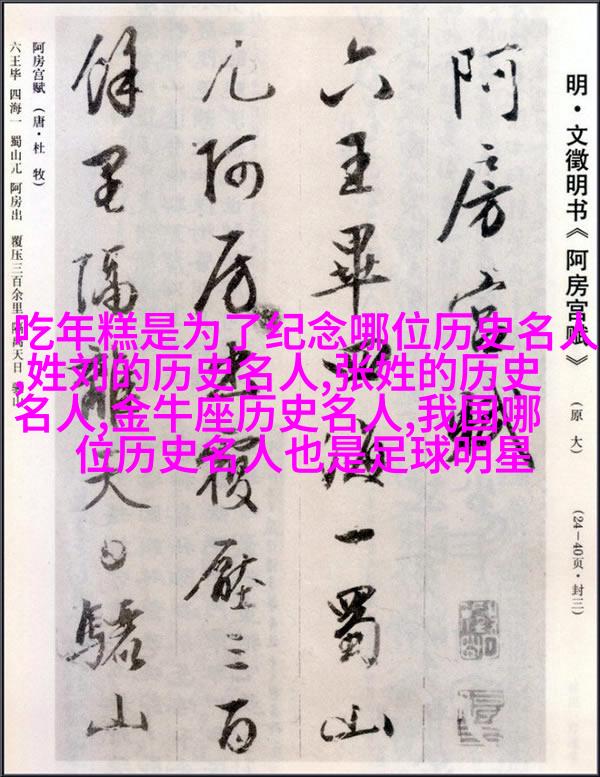 明·文徵明书《阿房宫赋》（原大）（24—40页·封三）
阿房宫賦
六王畢四海一蜀山
兀阿房出覆壓三百
餘里隔離天日驪山
阿房宫赋（唐·杜牧）
六王毕 四海一 蜀山兀 阿房出 覆压三百余里 隔离天日 骊山
吃年糕是为了纪念哪位历史名人
,姓刘的历史名人,张姓的历史
名人,金牛座历史名人,我国哪
位历史名人也是足球明星